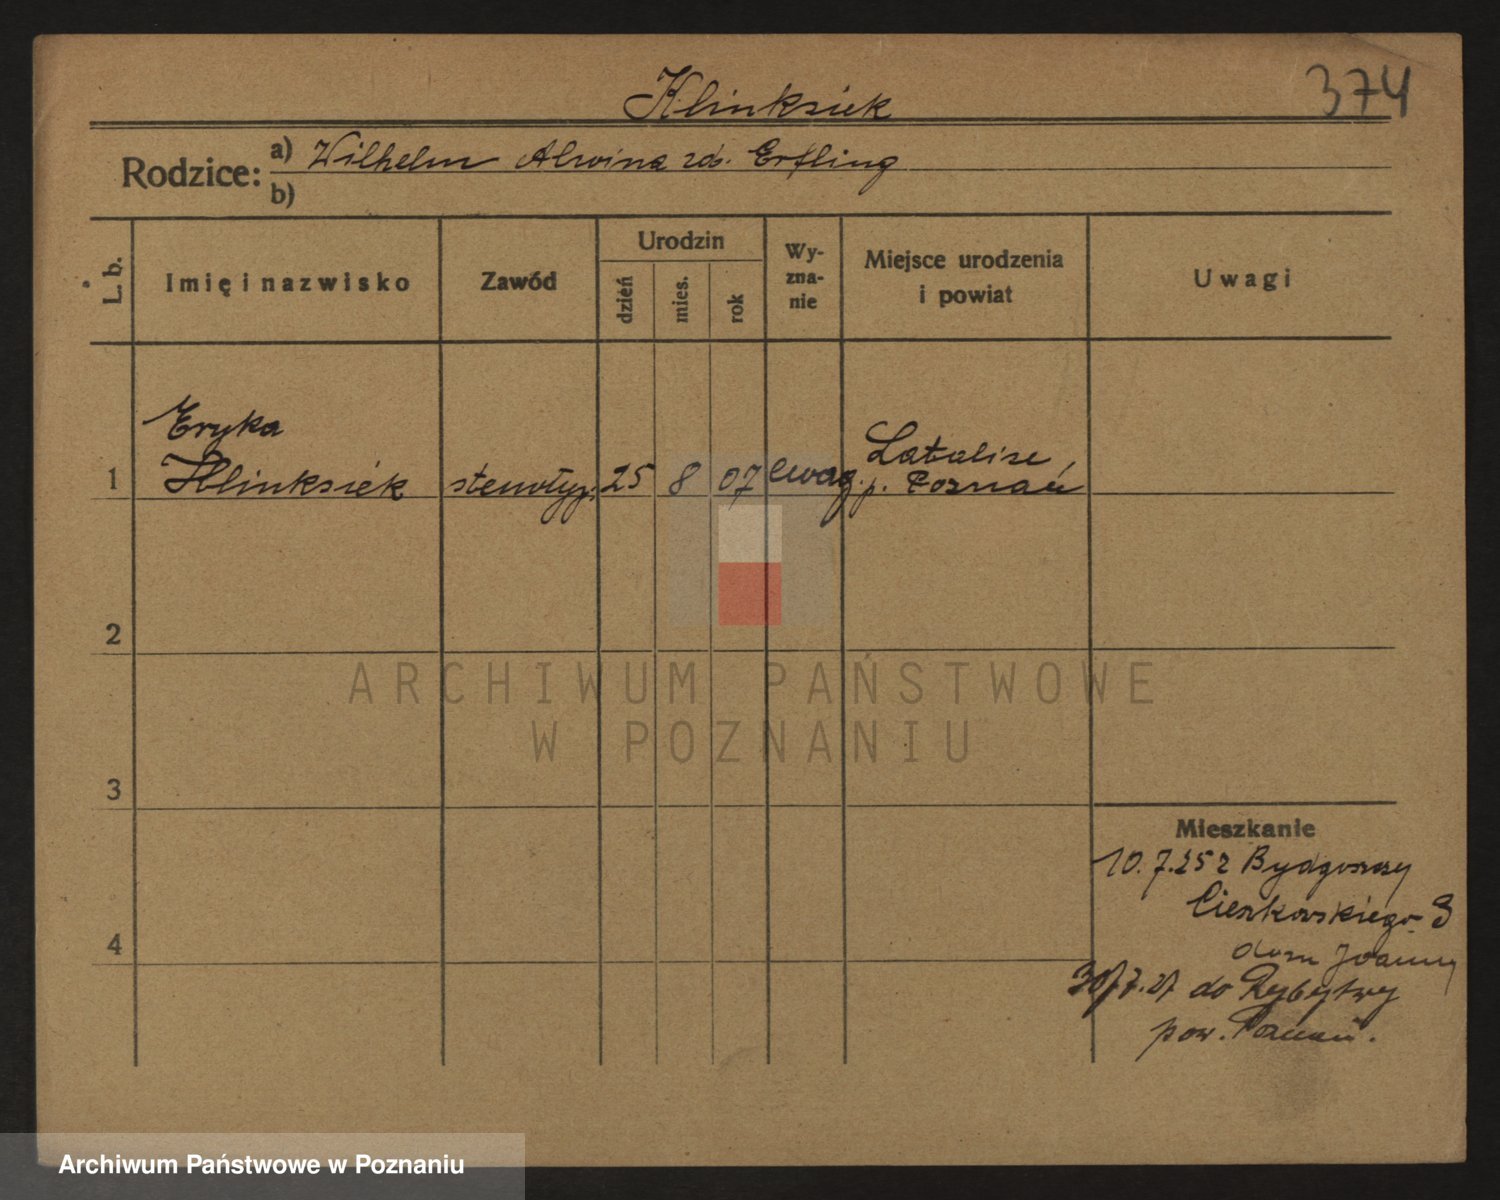 Klinksiek
374
Rodzice:
a) Wilhelm Alwina zd. Ertling
b)
L. b.
Imię i nazwisko
Zawód
Urodzin
dzień
mies.
rok
Wy-
zna-
nie
Miejsce urodzenia
i powiat
Uwagi
Eryka
1 Klinksiek stenotyp. 25 8 07 ewag. Latalice
p. Poznań
2
3
4
Mieszkanie
10.7.25 z Bydgoszczy
Cieszkowskiego
dom
7.27 do
pow. Poznań.
ARCHIWUM PAŃSTWOWE
W POZNANIU
Archiwum Państwowe w Poznaniu